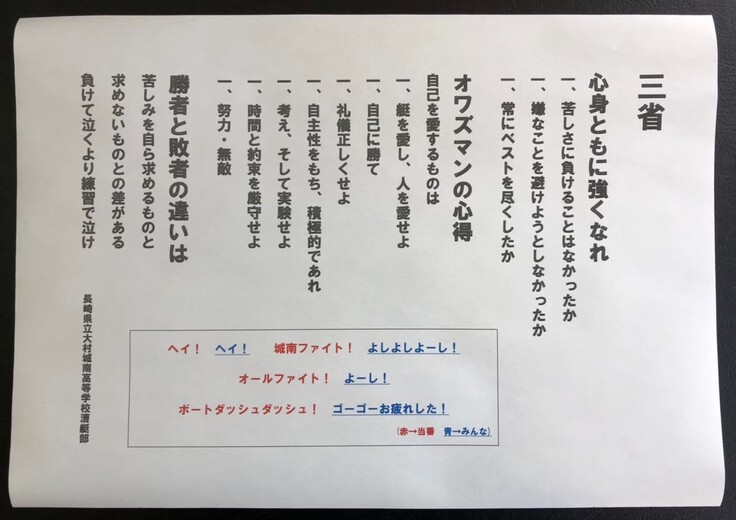 三省
心身ともに強くなれ
一、苦しさに負けることはなかったか
一、嫌なことを避けようとしなかったか
一、常にベストを尽くしたか
オワズマンの心得
自己を愛するものは
一、艇を愛し、人を愛せよ
一、自己に勝て
一、礼儀正しくせよ
一、自主性をもち、積極的であれ
一、考え、そして実験せよ
一、時間と約束を厳守せよ
一、努力・無敵
勝者と敗者の違いは
苦しみを自ら求めるものと
求めないものとの差がある
負けて泣くより練習で泣け
長崎県立大村城南高等学校漕艇部
ヘイ！ ヘイ！ 城南ファイト！ よしよしよーし！
オールファイト！ よーし！
ボートダッシュダッシュ！ ゴーゴーお疲れした！
（赤→当番 青→みんな）